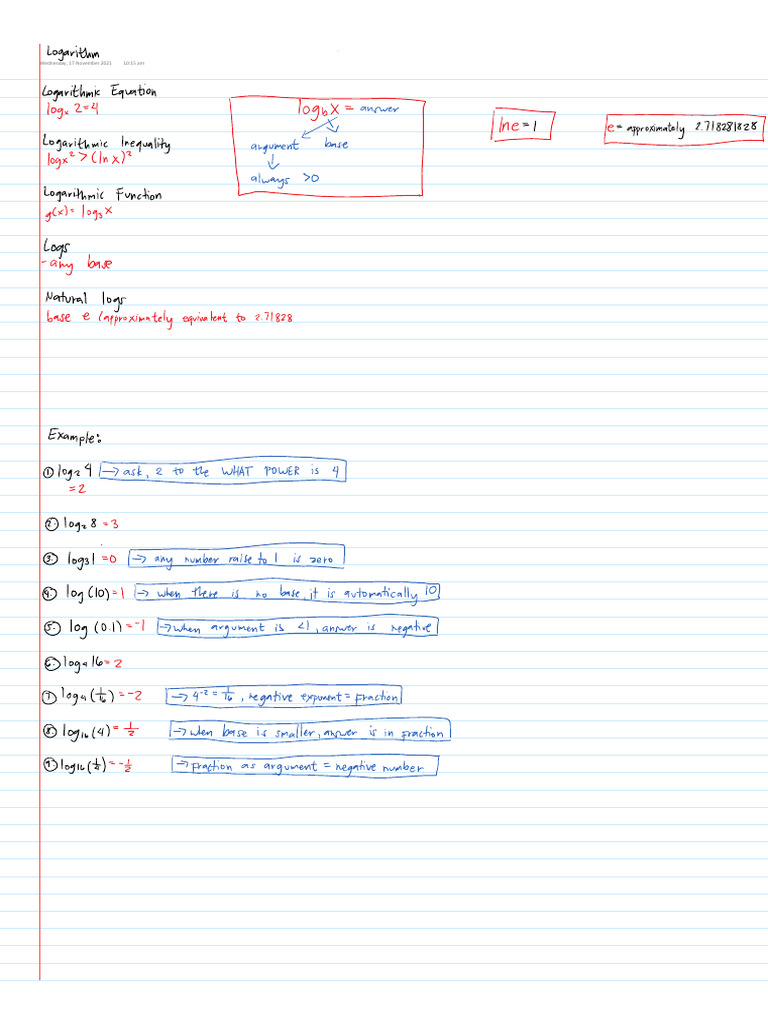 Logarithm
Wednesday, 17 November 2021 10:15 am
Logarithmic Equation
logₓ 2 = 4
Logarithmic Inequality
log x² > (ln x)²
Logarithmic Function
g(x) = log₃ x
Logs
- any base
Natural logs
base e (approximately equivalent to 2.71828
log_b x = answer
argument base
always >0
ln e = 1
e = approximately 2.718281828
Example:
① log₂ 4 → ask, 2 to the WHAT POWER is 4
= 2
②. log₂ 8 = 3
③. log₃ 1 = 0 → any number raise to 1 is zero
④. log (10) = 1 → when there is no base, it is automatically 10
⑤. log (0.1) = -1 → when argument is <1, answer is negative
⑥. log₄ 16 = 2
⑦ log₄ (1/16) = -2 → 4⁻² = 1/16, negative exponent = fraction
⑧. log₁₆ (4) = 1/2 → when base is smaller, answer is in fraction
⑨. log₁₆ (1/4) = -1/2 → fraction as argument = negative number